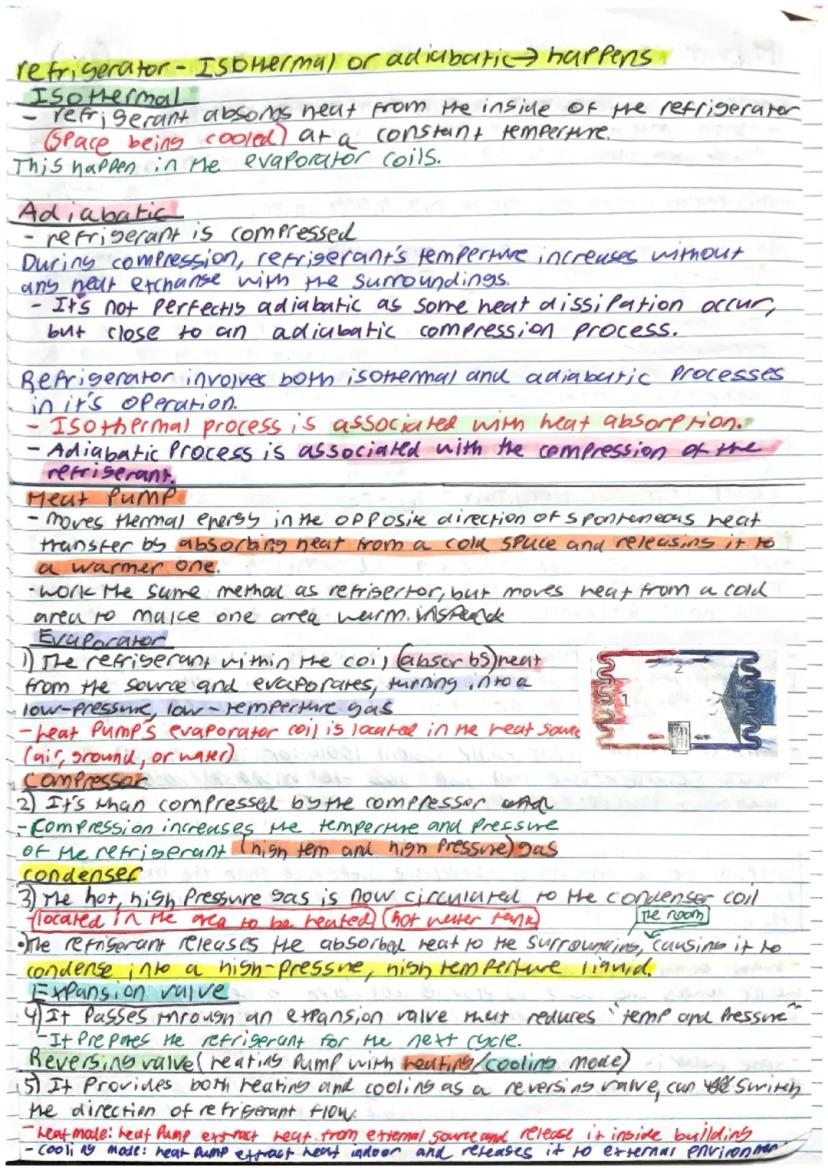 refrigerator - Isothermal or adiabatic → happens
Isothermal
- refrigerant absorbs heat from the inside of the refrigerator
(space being cooled) at a constant temperture.
This happen in the evaporator coils.
Adiabatic
- refrigerant is compressed
During compression, refrigerant's temperture increases without
any heat exchange with the surroundings.
- It's not perfectly adiabatic as some heat dissipation occur,
but close to an adiabatic compression process.
Refrigerator involves both isothermal and adiabatic processes
in it's operation.
- Isothermal process is associated with heat absorption.
- Adiabatic Process is associated with the compression of the
refrigerant.
Heat Pump
- moves thermal energy in the opposite direction of spontaneous heat
transfer by absorbing heat from a cold space and releasing it to
a warmer one.
- work the same method as refrigertor, but moves heat from a cold
area to make one area warm. instead
Evaporator
1) The refrigerant within the coil (absorbs) heat
from the source and evaporates, turning into a
low-pressure, low-temperature gas
- heat Pump's evaporator coil is located in the heat source
(air, ground, or water)
1
2
Compressor
2) It's than compressed by the compressor and
- Compression increases the temperture and pressure
of the refrigerant (high tem and high pressure) gas
condenser
3) The hot, high pressure gas is now circulated to the condenser coil
(located in the area to be heated) (hot water tank)
The room
• The refrigerant releases the absorbed heat to the surrounding, causing it to
condense into a high-pressure, high temperture liquid.
Expansion valve
4) It passes through an expansion valve that reduces "temp and pressure"
- It prepares the refrigerant for the next cycle.
Reversing valve (heating pump with heating/cooling mode)
5) It provides both heating and cooling as a reversing valve, can switch
the direction of refrigerant flow.
- heat mode: heat pump extract heat from external source and release it inside building
- cooling mode: heat pump extract heat indoor and releases it to external environmen